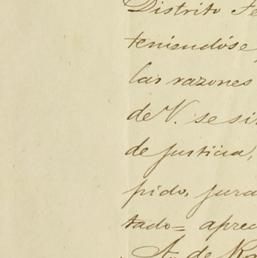 Distrito Fe
teniendóse
las razones
de V. se si
de justicia,
pido, jura
tado= aprec
A. de Ra